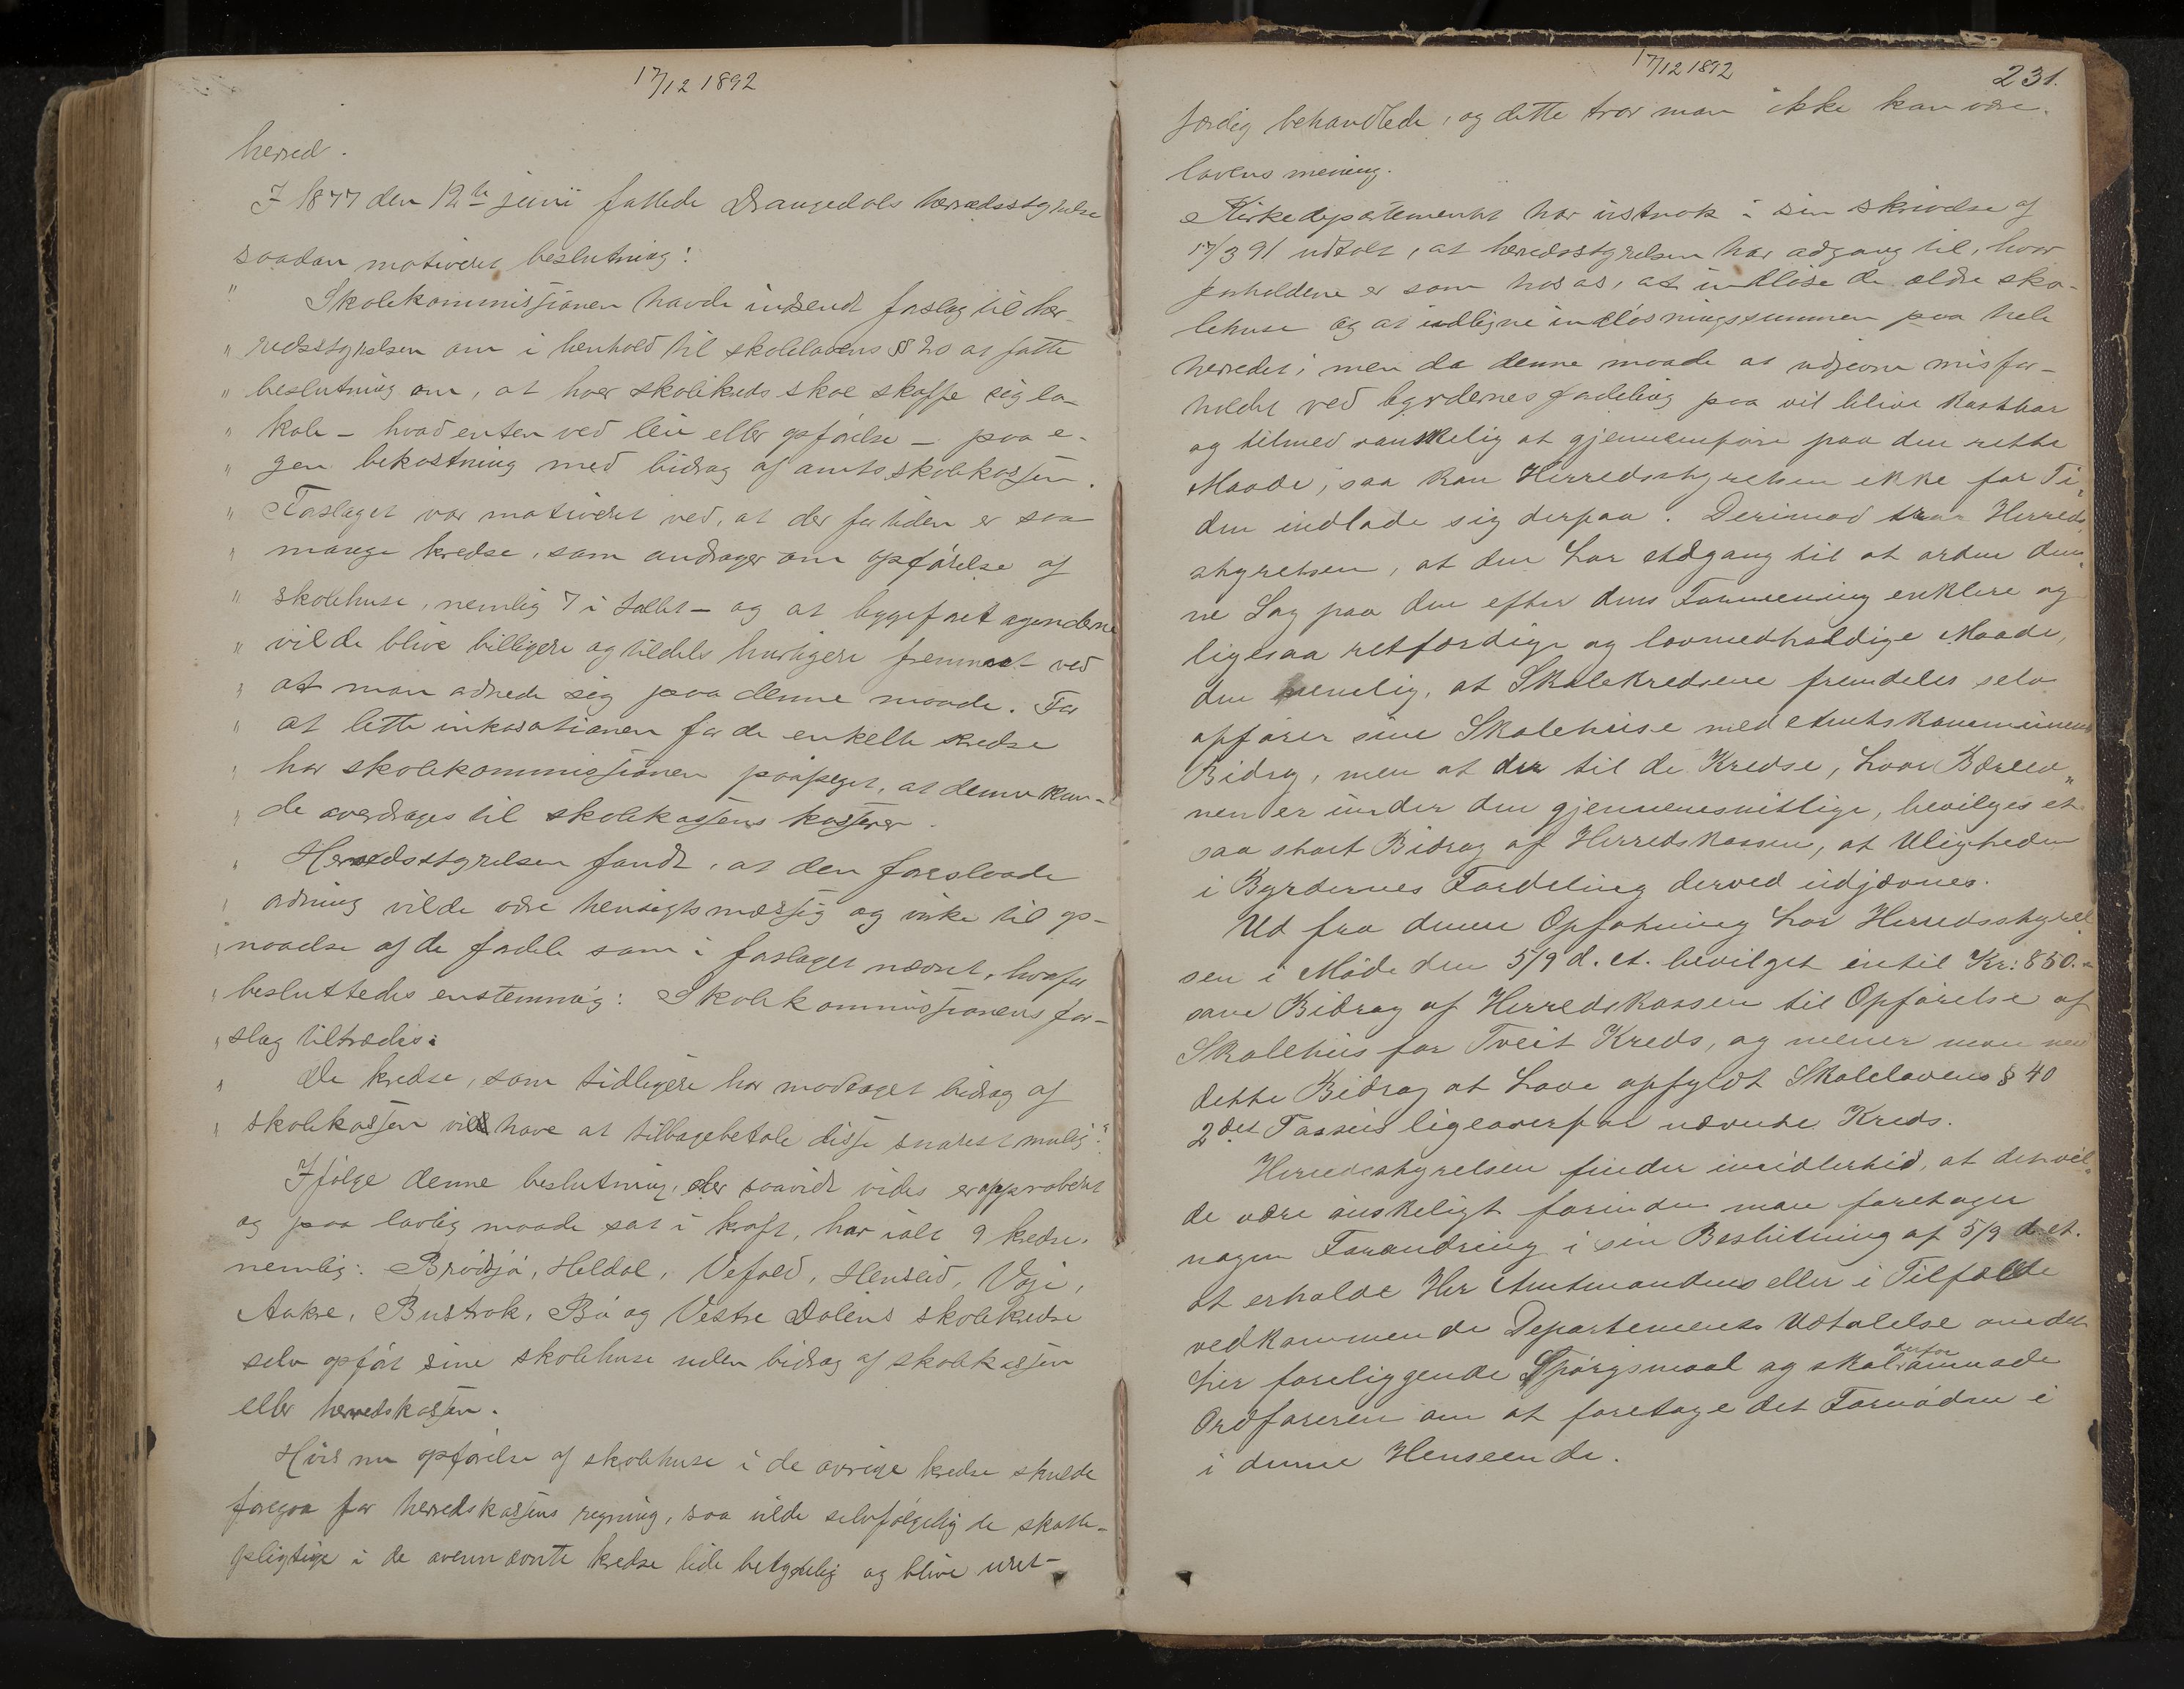 17/12 1892
herred.
I 1877 den 12te juni fattede Drangedals herredsstyrelse
saadan motiveret beslutning:
" Skolekommissionen havde indsendt forslag til her-
" redsstyrelsen om i henhold til skolelovens §§ 20 at fatte
" beslutning om, at hver skolekreds skal skaffe sig lo-
" kale - hvad enten ved leie eller opførelse - paa e-
" gen bekostning med bidrag af amtsskolekassen.
" Forslaget var motiveret ved, at der for tiden er saa
" mange kredse, som andrager om opførelse af
" skolehuse, nemlig 7 i tallet - og at byggeforetagenderne
" vilde blive billigere og tildels hurtigere fremmet ved
" at man ordnede sig paa denne maade. For
" at lette inkasationen for de enkelte kredse
" har skolekommissionen paapeget, at denne kun-
" de overdrages til skolekassens kasserer.
" Herredsstyrelsen fandt, at den foreslaade
" ordning vilde være hensigtsmæssig og virke til op-
" naaelse af de fordele som i forslaget nævnt, hvorfor
" besluttedes enstemmig: Skolekommissionens for-
" slag tiltrædes.
" De kredse, som tidligere har modtaget bidrag af
" skolekassen vil have at tilbagebetale disse snarest mulig."
Ifølge denne beslutning, der saavidt vides er approberet
og paa lovlig maade sat i kraft, har ialt 9 kredse.
nemlig: Brødsjø, Heldal, Vefald, Henseid, Voje,
Aakre, Bustrak, Bø og Vestre Dalens skolekredse
selv opført sine skolehuse uden bidrag af skolekassen
eller herredskassen.
Hvis nu opførelse af skolehuse i de øvrige kredse skulde
foregaa for herredskassens regning, saa vilde selvfølgelig de skatte-
pligtige i de ovennævnte kredse lide betydelig og blive uret-
17/12 1892
231.
færdig behandlede, og dette tror man ikke kan være
lovens mening.
Kirkedepartementet har vistnok i sin skrivelse af
17/3 91 udtalt, at herredsstyrelsen har adgang til, hvor
forholdene er som hos os, at indløse de ældre sko-
lehuse og at udligne indløsningssummen paa hele
herredet; men da denne maade at udjevne misfor-
holdet ved byrdernes fordeling paa vil blive kostbar
og tilmed vanskelig at gjennemføre paa den rette
Maade, saa kan Herredsstyrelsen ikke for Ti-
den indlade sig derpaa. Derimod tror Herreds-
styrelsen, at den har Adgang til at ordne den-
ne Sag paa den efter dens Formening enklere og
ligesaa retfærdige og lovmedholdige Maade,
den nemlig, at Skolekredsene fremdeles selv
opfører sine Skolehuse med Amtskommunens
Bidrag, men at der til de Kredse, hvor Bæreev-
nen er under den gjennemsnitlige, bevilges et
saa stort Bidrag af Herredskassen, at Uligheden
i Byrdernes Fordeling derved udjævnes.
Ud fra denne Opfatning har Herredsstyrel-
sen i Møde den 5/9 d. A. bevilget indtil Kr: 850.-
som Bidrag af Herredskassen til Opførelse af
Skolehus for Tveit Kreds, og mener man ved
dette Bidrag at have opfyldt Skolelovens § 40
2det Passus ligeoverfor nævnte Kreds.
Herredsstyrelsen finder imidlertid, at det vil-
de være ønskeligt forinden man foretager
nogen Forandring i sin Beslutning af 5/9 d. A.
at erholde Hr Amtmandens eller i Tilfælde
vedkommende Departements Udtalelse om det
her foreliggende Spørgsmaal og skal derfor anmode
Ordføreren om at foretage det Fornødne i
i denne Henseende.